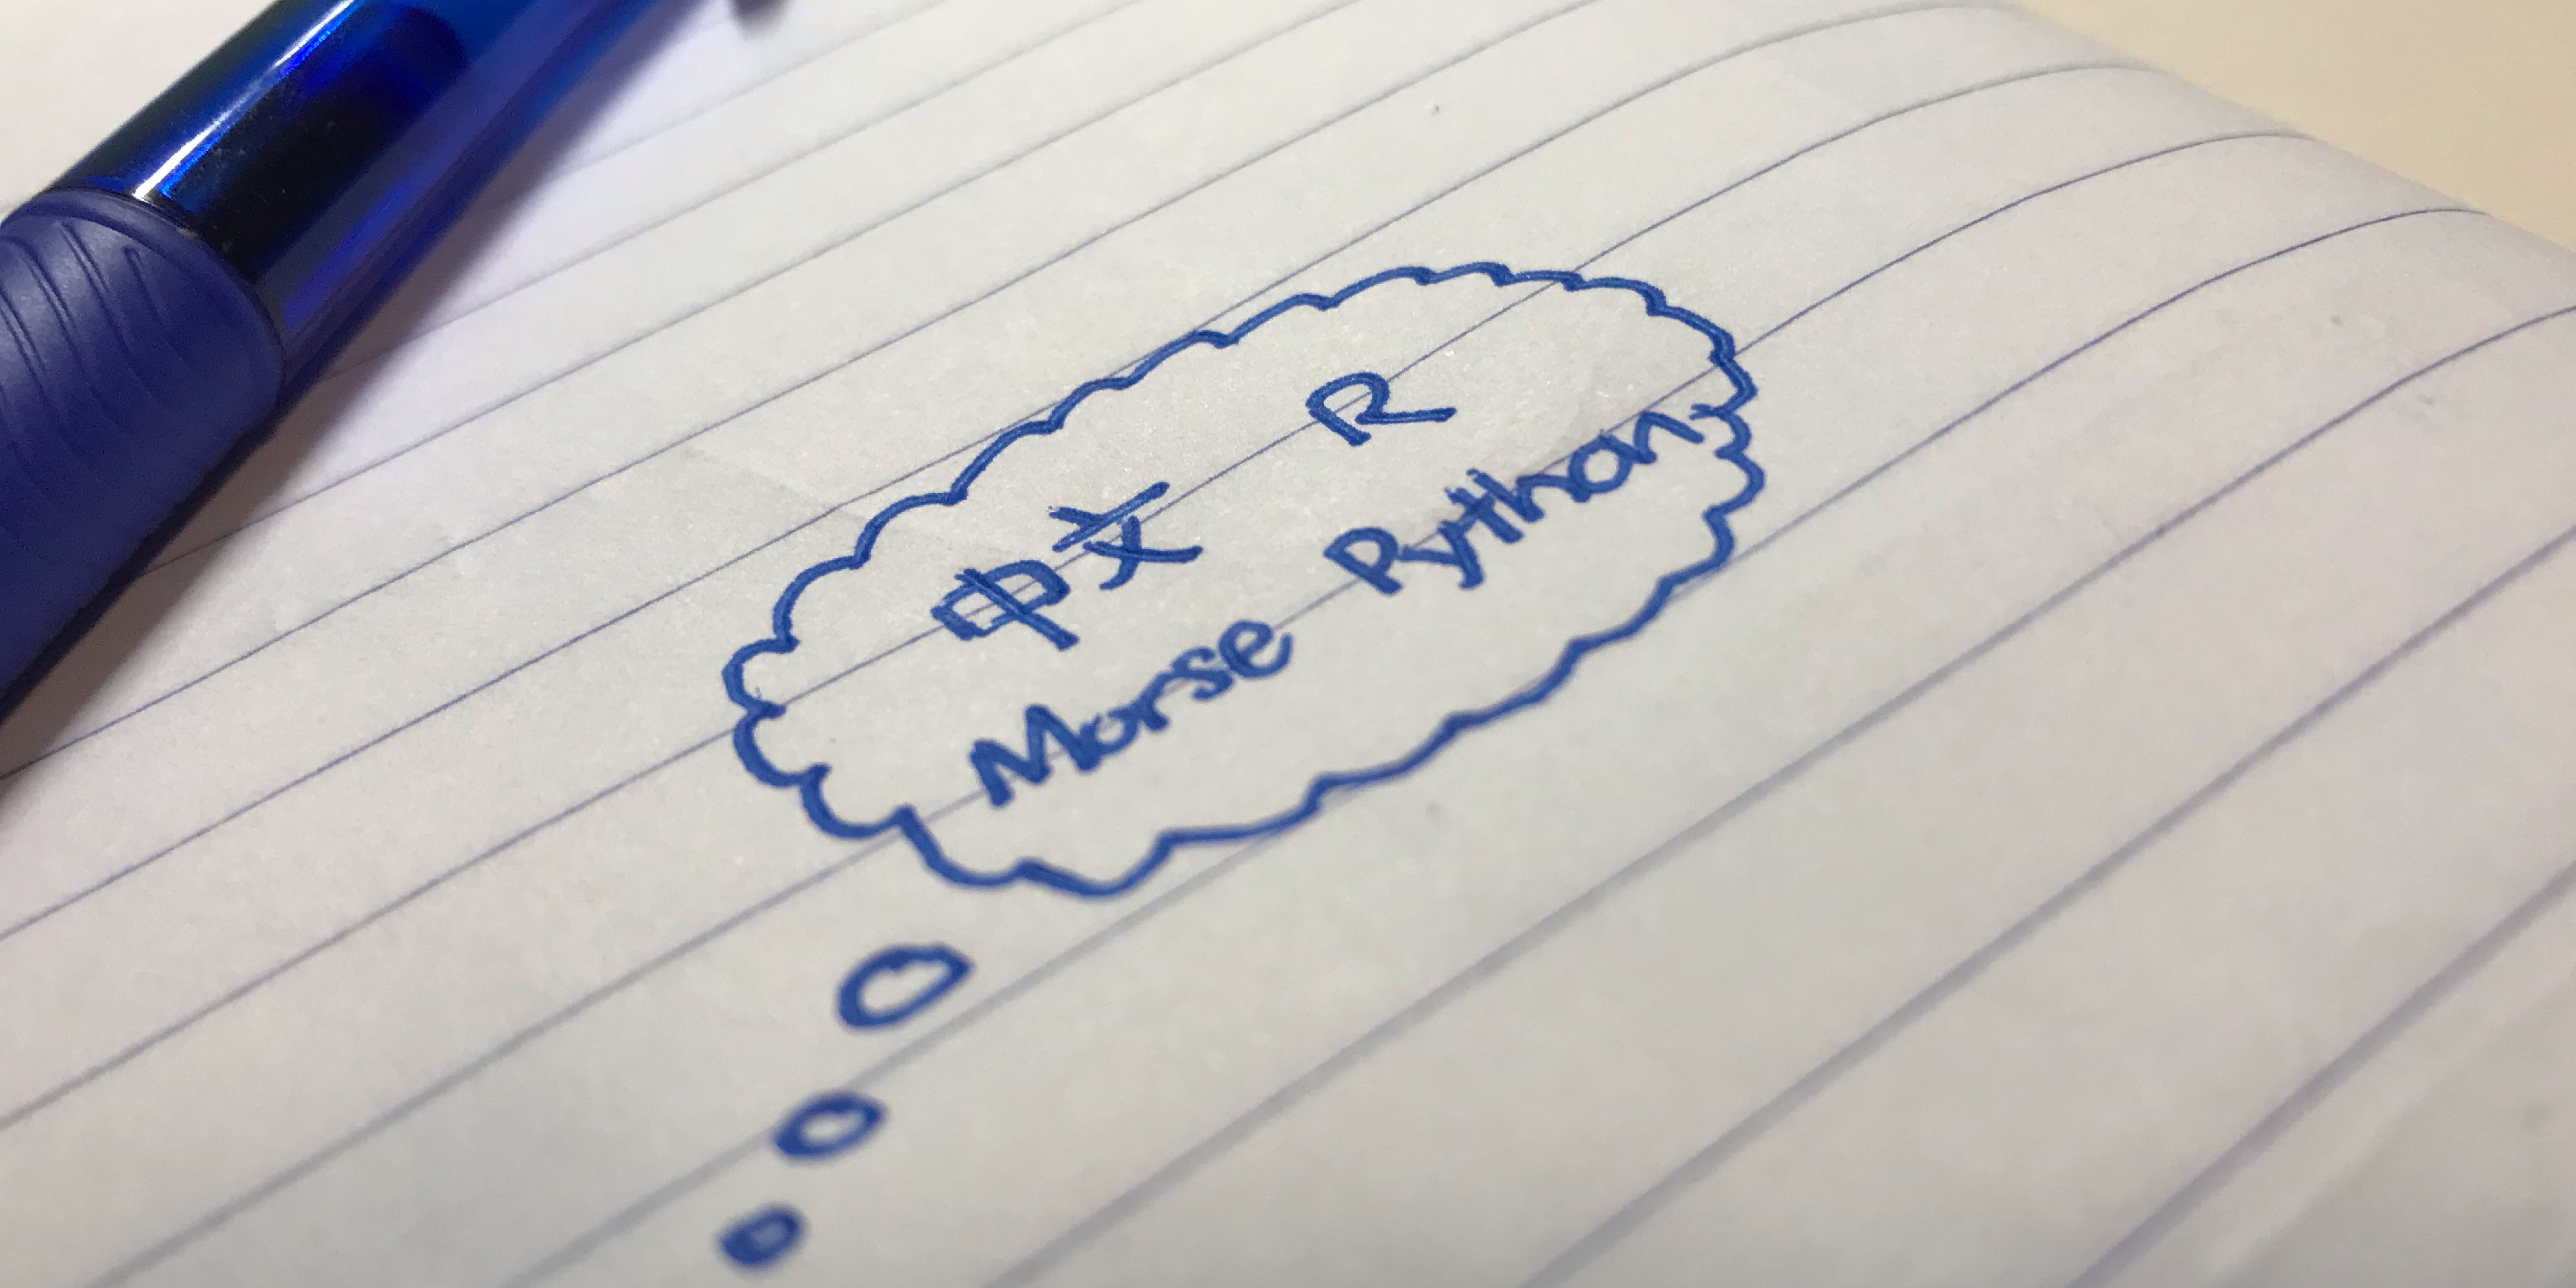 中文 R
Morse Python